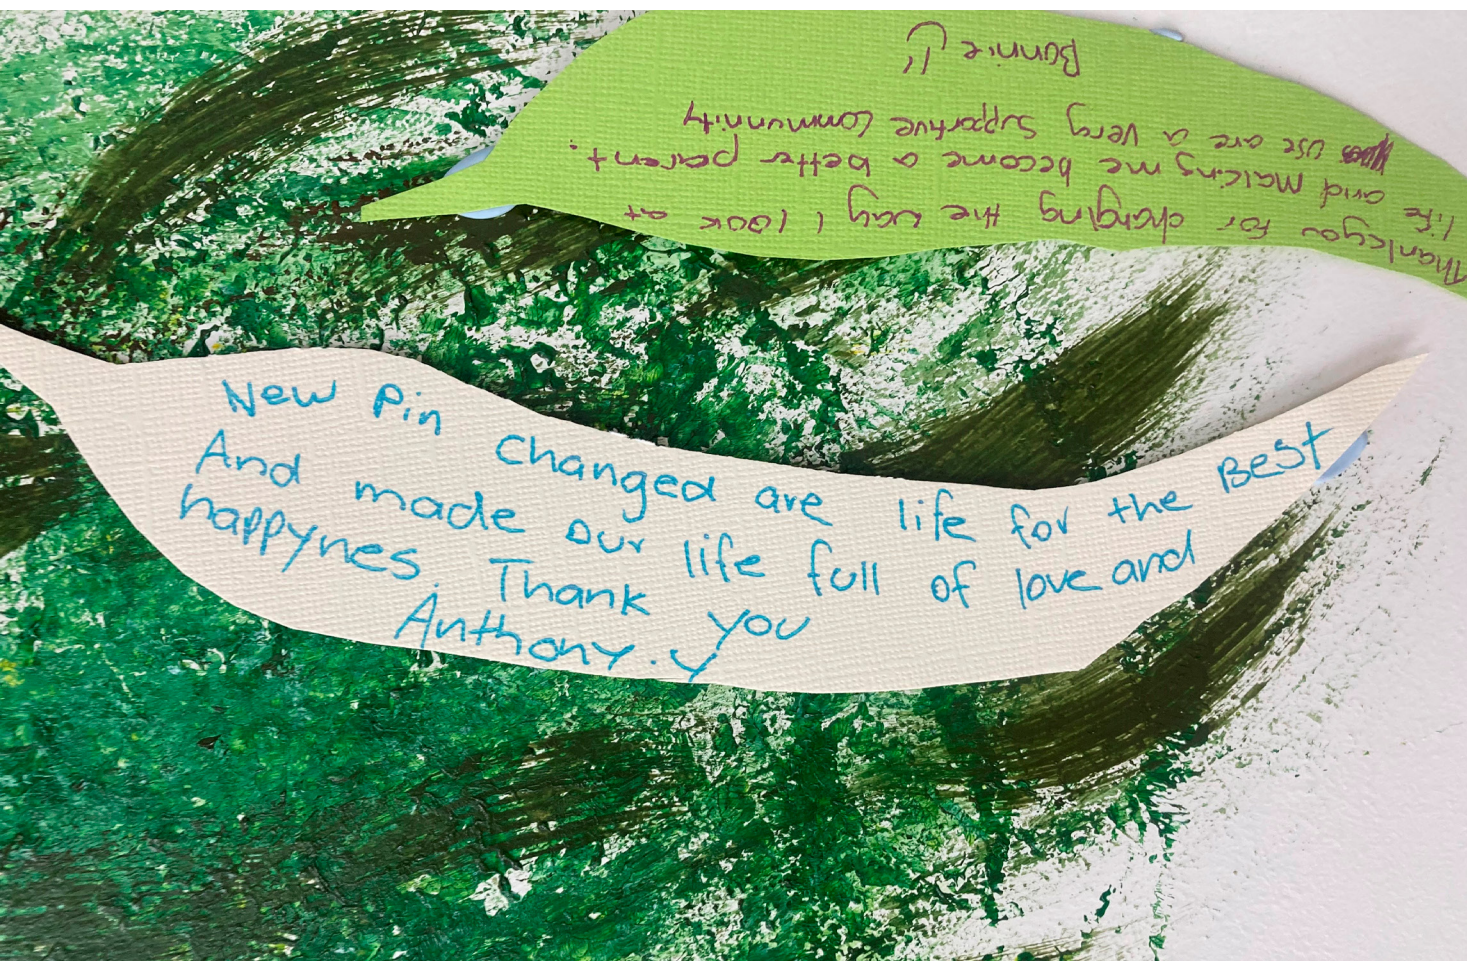 Thankyou for changing the way I look at
life and making me become a better parent.
use are a very supportive communnity
Bonnie
New Pin changed are life for the Best
And made our life full of love and
happynes. Thank you
Anthony.y